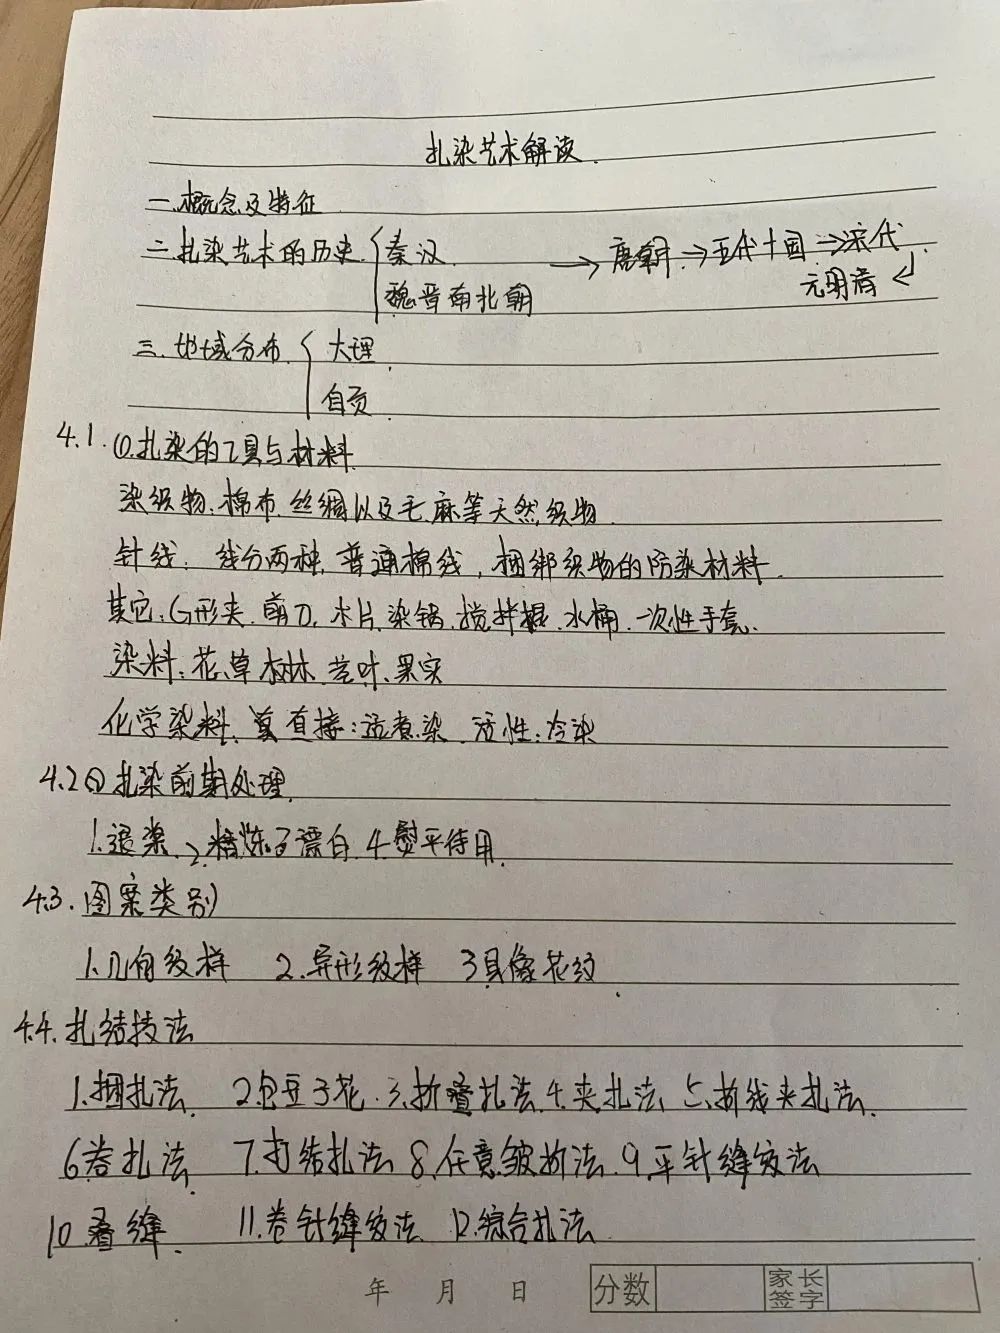 扎染艺术解读.
一.概念及特征
二.扎染艺术的历史 { 秦汉 → 唐朝 → 五代十国 → 宋代
魏晋南北朝 元明清
三.地域分布 { 大理
自贡
4.1. ①.扎染的工具与材料
染织物.棉布.丝绸以及毛.麻等天然织物.
针线: 线分两种,普通棉线,捆绑织物的防染材料.
其它:G形夹.剪刀.木片.染锅.搅拌棍.水桶.一次性手套.
染料:花、草、树林.茎叶.果实
化学染料、直接:适煮染.活性:冷染
4.2 ② 扎染前期处理.
1.退浆.2.精炼3漂白.4.熨平待用.
4.3.图案类别
1.几何纹样 2.异形纹样 3具像花纹.
4.4.扎结技法
1.捆扎法. 2包豆子花.3.折叠扎法.4.夹扎法.5.折线夹扎法.
6卷扎法. 7.打结扎法 8.任意皱折法.9.平针缝绞法
10.叠缝. 11.卷针缝绞法. 12.综合扎法.
年 月 日 分数 家长签字